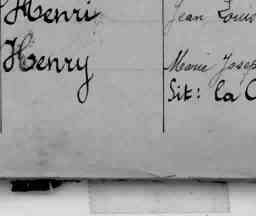 Henri
Jean Louis
Henry
Marie Josep
Sit: la C